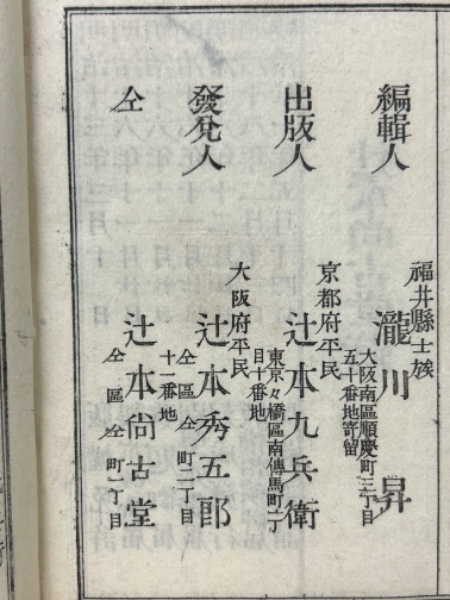 編輯人
福井縣士族
瀧川 昇
大阪南區順慶町三丁目
五十番地寄留
出版人
京都府平民
辻本九兵衛
東京々橋區南傳馬町一丁
目十番地
發兌人
大阪府平民
辻本秀五郎
仝區仝町二丁目
十一番地
仝
辻本尚古堂
仝區仝町一丁目